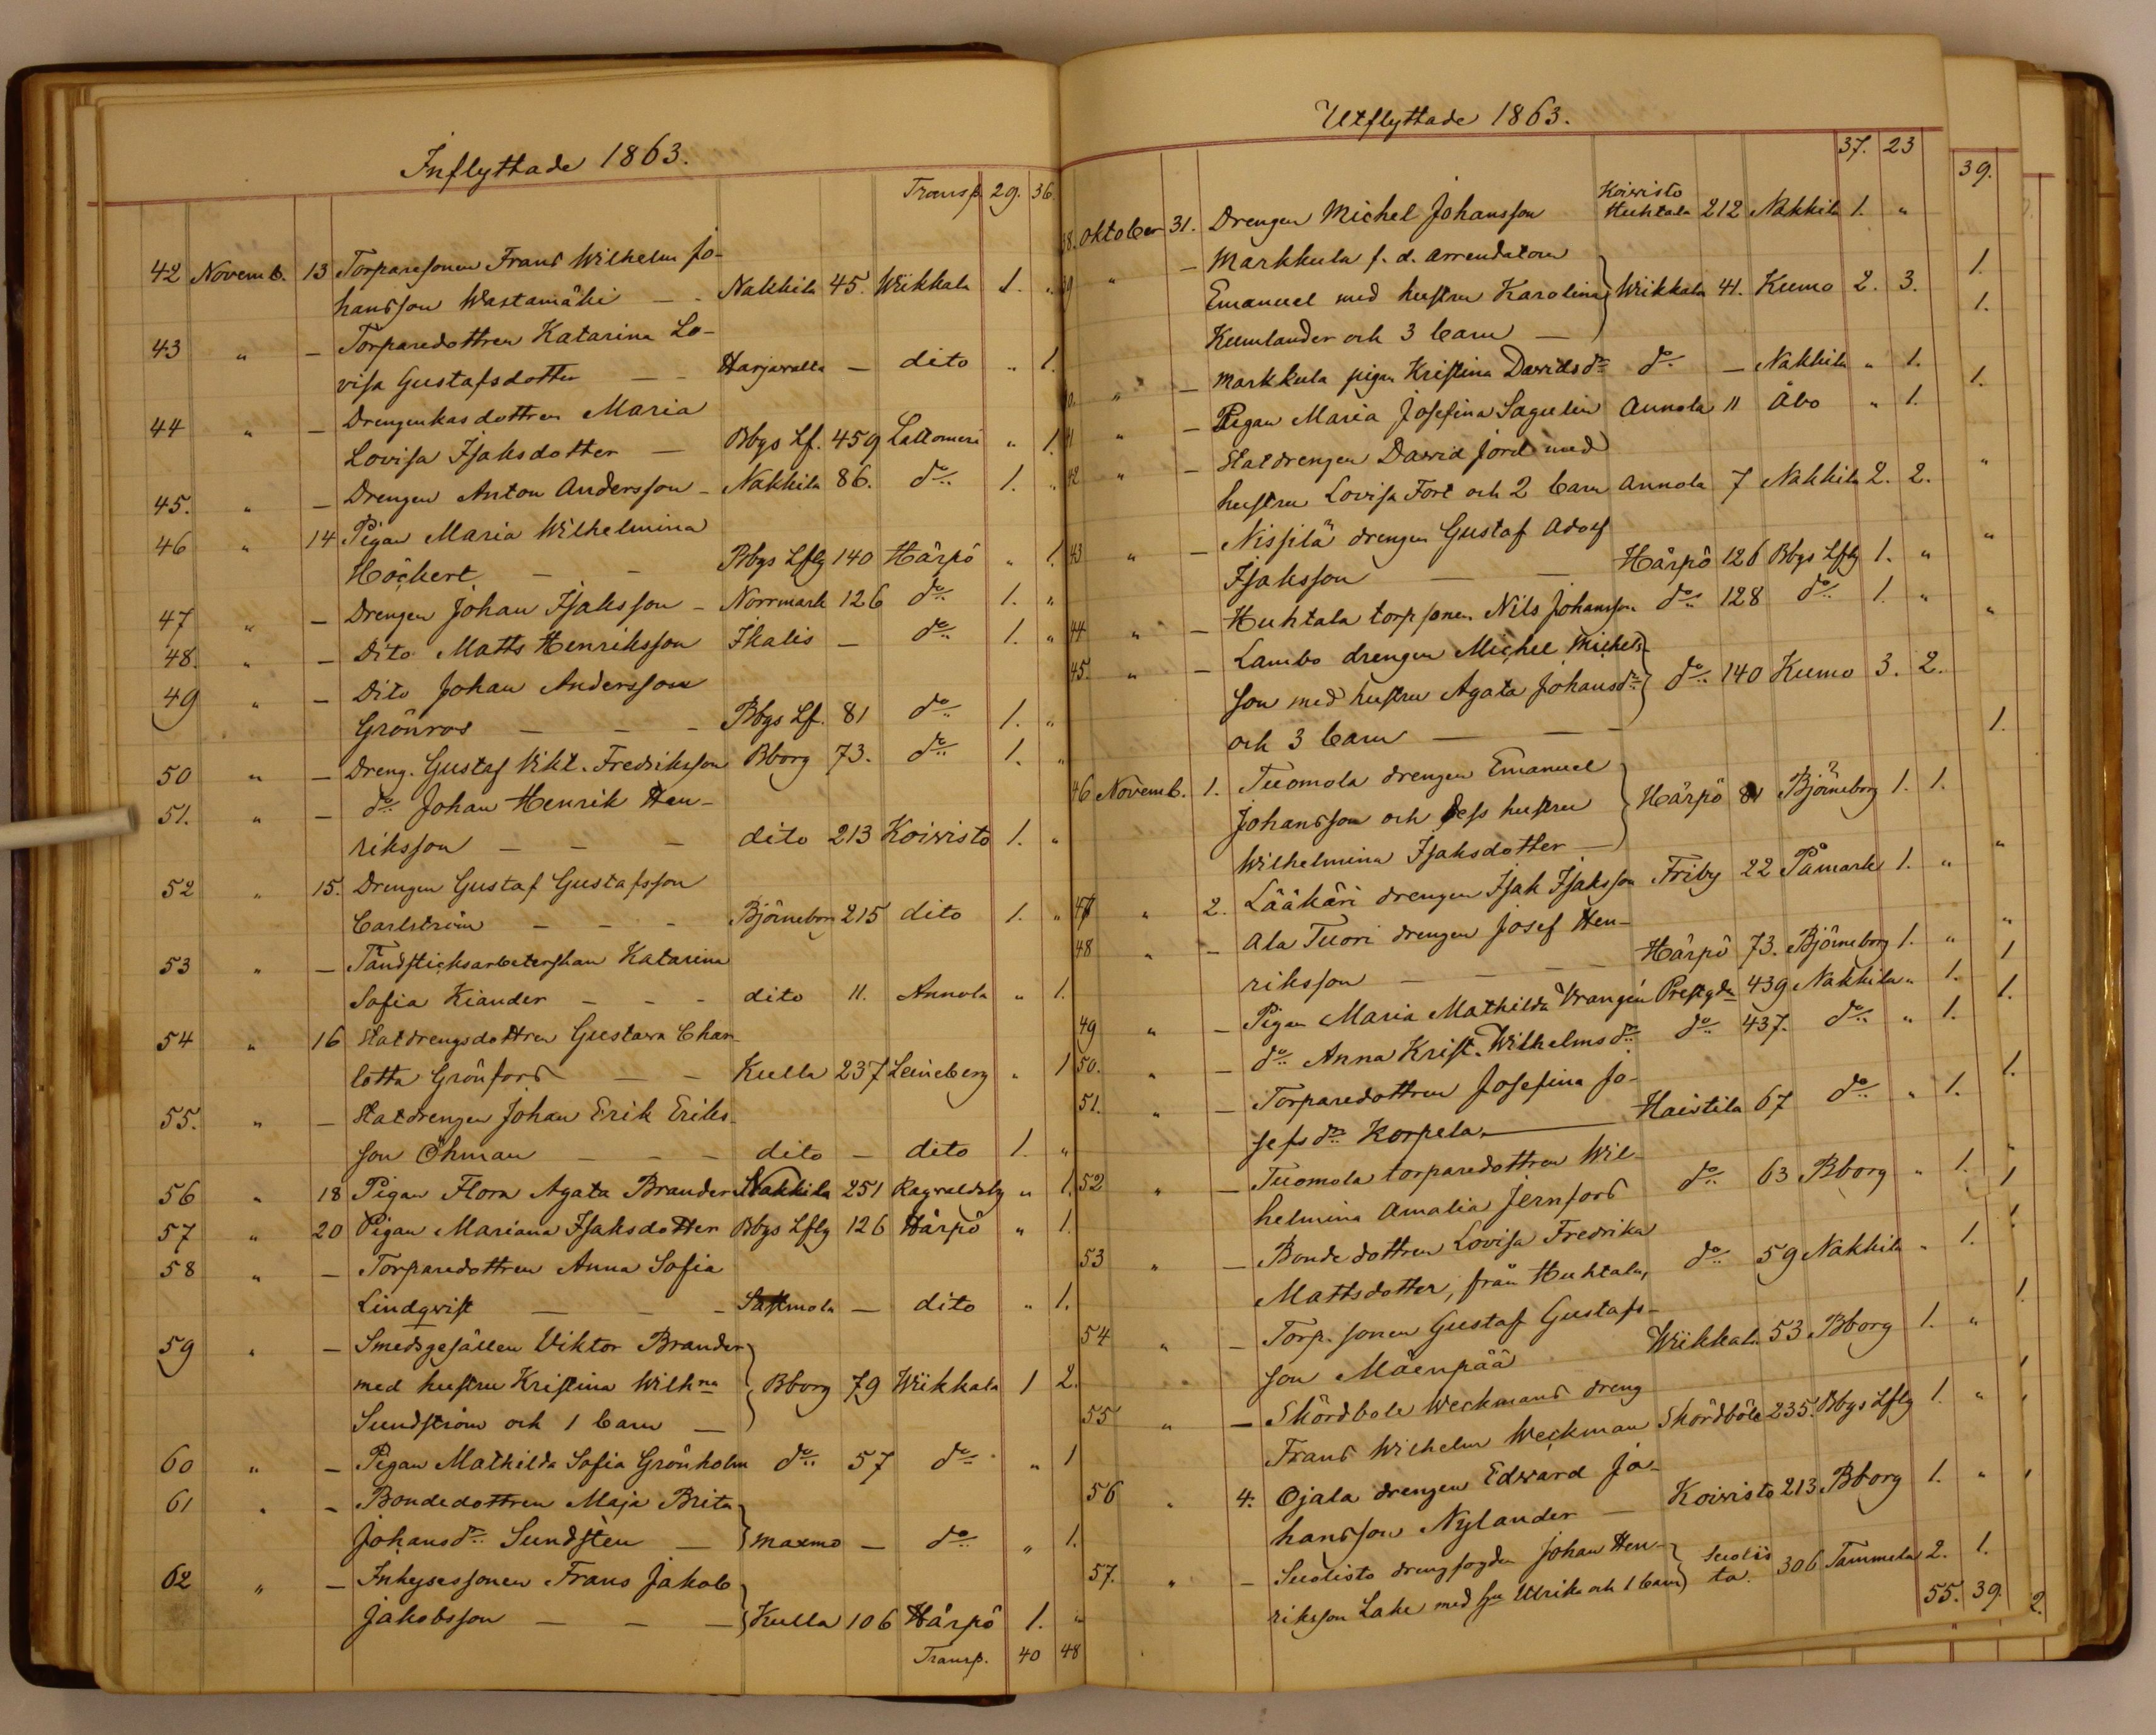 Inflyttade 1863.
Transp. 29. 36.
42 Novemb. 13 Torparesonen Frans Wilhelm Jo-
hansson Wastamäki — - Nakkila 45. Wiikkala 1. "
43 " — Torparedottren Katarina Lo-
visa Gustafsdotter — - Harjavalla — dito " 1.
44 " — Drengenkasdottren Maria
Lovisa Isaksdotter — Bbgs Lf. 459 Lattomeri " 1.
45. " — Drengen Anton Andersson - Nakkila 86. do 1. "
46 " 14 Pigan Maria Wilhelmina
Höckert — — Bbgs Lflg 140 Hårpö " 1.
47 " — Drengen Johan Isaksson - Norrmark 126 do 1. "
48. " — Dito Matts Henriksson Ikalis — do 1. "
49 " — Dito Johan Andersson
Grönros — — - Bbgs Lf. 81 do 1. "
50 " — Dreng. Gustaf Vikt. Fredriksson Bborg 73. do 1. "
51. " — do Johan Henrik Hen-
riksson — — — dito 213 Koivisto 1. "
52 " 15. Drengen Gustaf Gustafsson
Carlström — - - Björneborg 215 dito 1. "
53 " — Tändsticksarbeterskan Katarina
Sofia Kiander — - - dito 11. Annola " 1.
54 " 16 Statdrengsdottren Gustava Char-
lotta Grönfors — — Kulla 237 Leineberg " 1
55. " — Statdrengen Johan Erik Eriks-
son Öhman — — - dito — dito 1. "
56 " 18 Pigan Flora Agata Brander Nakkila 251 Ragvaldsby " 1.
57 " 20 Pigan Mariana Isaksdotter Bbgs Lflg 126 Hårpö " 1.
58 " — Torparedottren Anna Sofia
Lindqvist — — - Sastmola — dito " 1.
59 " — Smedsgesällen Viktor Brander
med hustru Kristina Wilhna Bborg 79 Wiikkala 1 2.
Sundström och 1 barn —
60 " — Pigan Mathilda Sofia Grönholm do 57 do " 1
61 " - Bondedottren Maja Brita
Johansdr Sundsten — Maxmo — do " 1.
62 " — Inhysessonen Frans Jakob
Jakobsson — — — Kulla 106 Hårpö 1. "
Transp. 40 48
Utflyttade 1863.
37. 23
38. Oktober 31. Drengen Michel Johansson Koivisto Huhtala 212 Nakkila 1. "
39 " — Markkula f. d. arrendatorn
Emanuel med hustru Karolina Wiikkala 41. Kumo 2. 3.
Kumlander och 3 barn —
40. " — Markkula pigan Kristina Davidsdr do — Nakkila " 1.
41 " — Pigan Maria Josefina Sagulin Annola 11 Åbo " 1.
42 " — Statdrengen David Jord med
hustru Lovisa Fort och 2 barn Annola 7 Nakkila 2. 2.
43 " — Nissilä drengen Gustaf Adolf
Isaksson — — Hårpö 126 Bbgs Lflg 1. "
44 " — Huhtala torp sonen Nils Johansson do 128 do 1. "
45. " — Lambo drengen Michel Michels-
son med hustru Agata Johansdr do 140 Kumo 3. 2.
och 3 barn — — -
46 Novemb. 1. Tuomola drengen Emanuel
Johansson och dess hustru Hårpö 81 Björneborg 1. 1.
Wilhelmina Isaksdotter —
47 " 2. Lääkäri drengen Isak Isaksson Friby 22 Påmark 1. "
48 " — Ala Tuori drengen Josef Hen-
riksson — — — Hårpö 73. Björneborg 1. "
49 " — Pigan Maria Mathilda Vrangén Prestgdn 439 Nakkila " 1.
50. " — do Anna Krist. Wilhelmsdr do 437. do " 1.
51. " — Torparedottren Josefina Jo-
sefsdr Korpela — Haistila 67 do " 1.
52 " — Tuomola torparedottren Wil-
helmina Amalia Jernfors do 63 Bborg " 1.
53 " — Bondedottren Lovisa Fredrika
Mattsdotter, från Huhtala, do 59 Nakkila " 1.
54 " — Torp. sonen Gustaf Gustafs-
son Mäenpää Wiikkala 53 Bborg 1. "
55 " — Skördbole Weckmans dreng
Frans Wilhelm Weckman Skördböle 235. Bbgs Lflg 1. "
56 " 4. Ojala drengen Edward Jo-
hansson Nylander — Koivisto 213 Bborg 1. "
57. " — Suolisto drengfogden Johan Hen-
riksson Lake med hu Ulrika och 1 barn Suolis ta. 306 Tammela 2. 1.
55. 39.
39.
2.